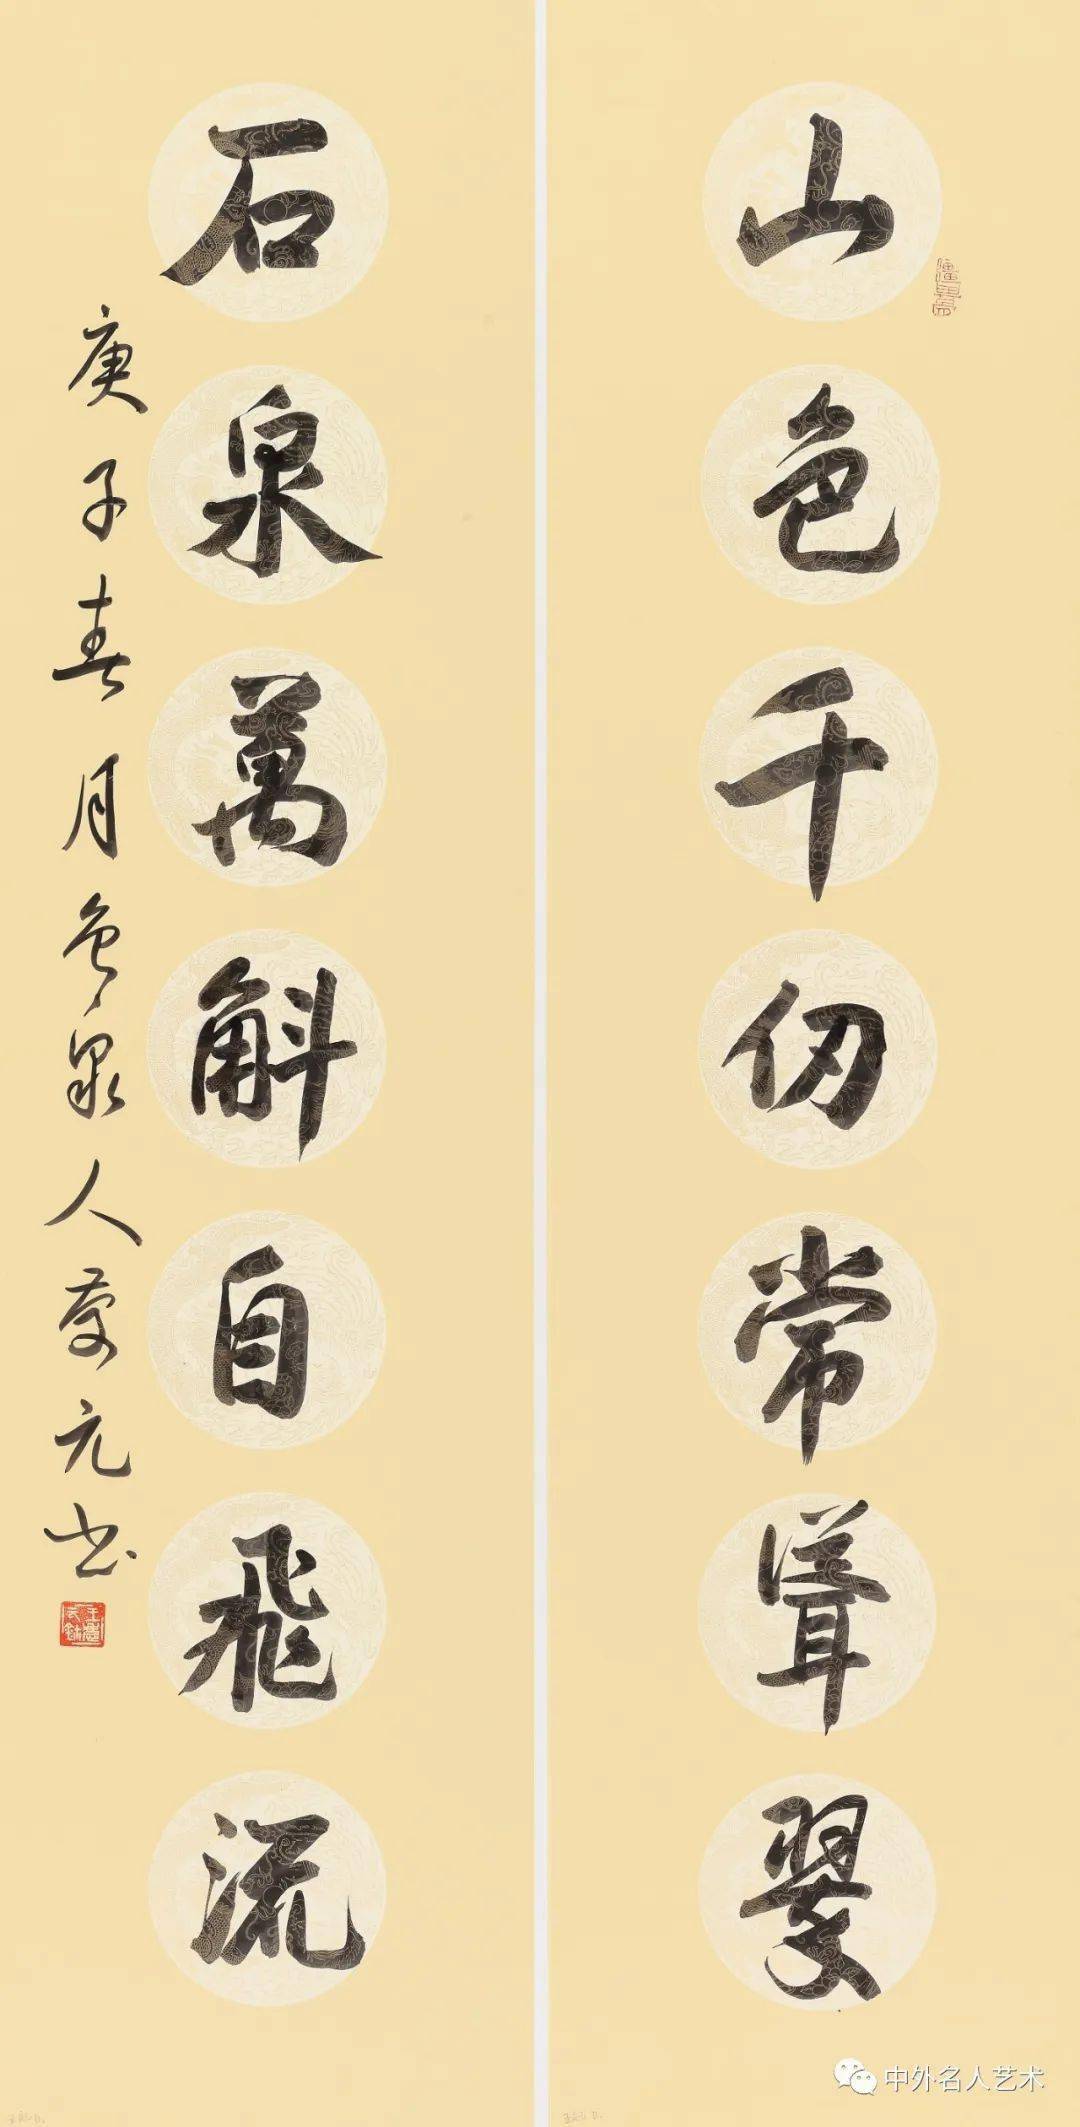 山色千仞常聳翠
石泉萬斛自飛流
庚子春月泉人慶元书
中外名人艺术